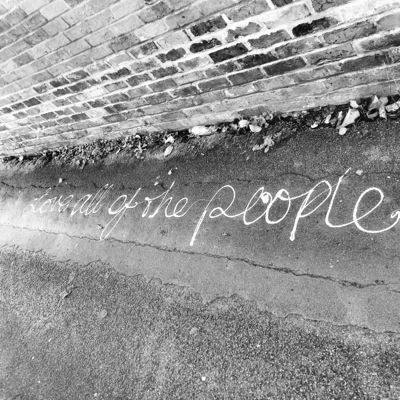 Love all of the people